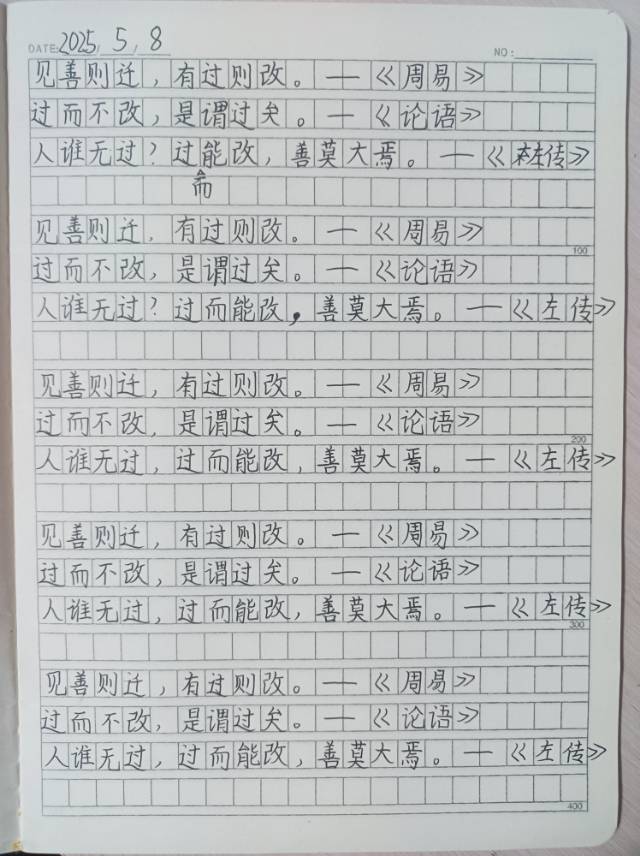 DATE: 2025 / 5 / 8
NO:
见善则迁，有过则改。—《周易》
过而不改，是谓过矣。—《论语》
人谁无过？过能改，善莫大焉。—《左传》
而
见善则迁，有过则改。—《周易》
100
过而不改，是谓过矣。—《论语》
人谁无过？过而能改，善莫大焉。—《左传》
见善则迁，有过则改。—《周易》
过而不改，是谓过矣。—《论语》
200
人谁无过，过而能改，善莫大焉。—《左传》
见善则迁，有过则改。—《周易》
过而不改，是谓过矣。—《论语》
人谁无过，过而能改，善莫大焉。—《左传》
300
见善则迁，有过则改。—《周易》
过而不改，是谓过矣。—《论语》
人谁无过，过而能改，善莫大焉。—《左传》
400